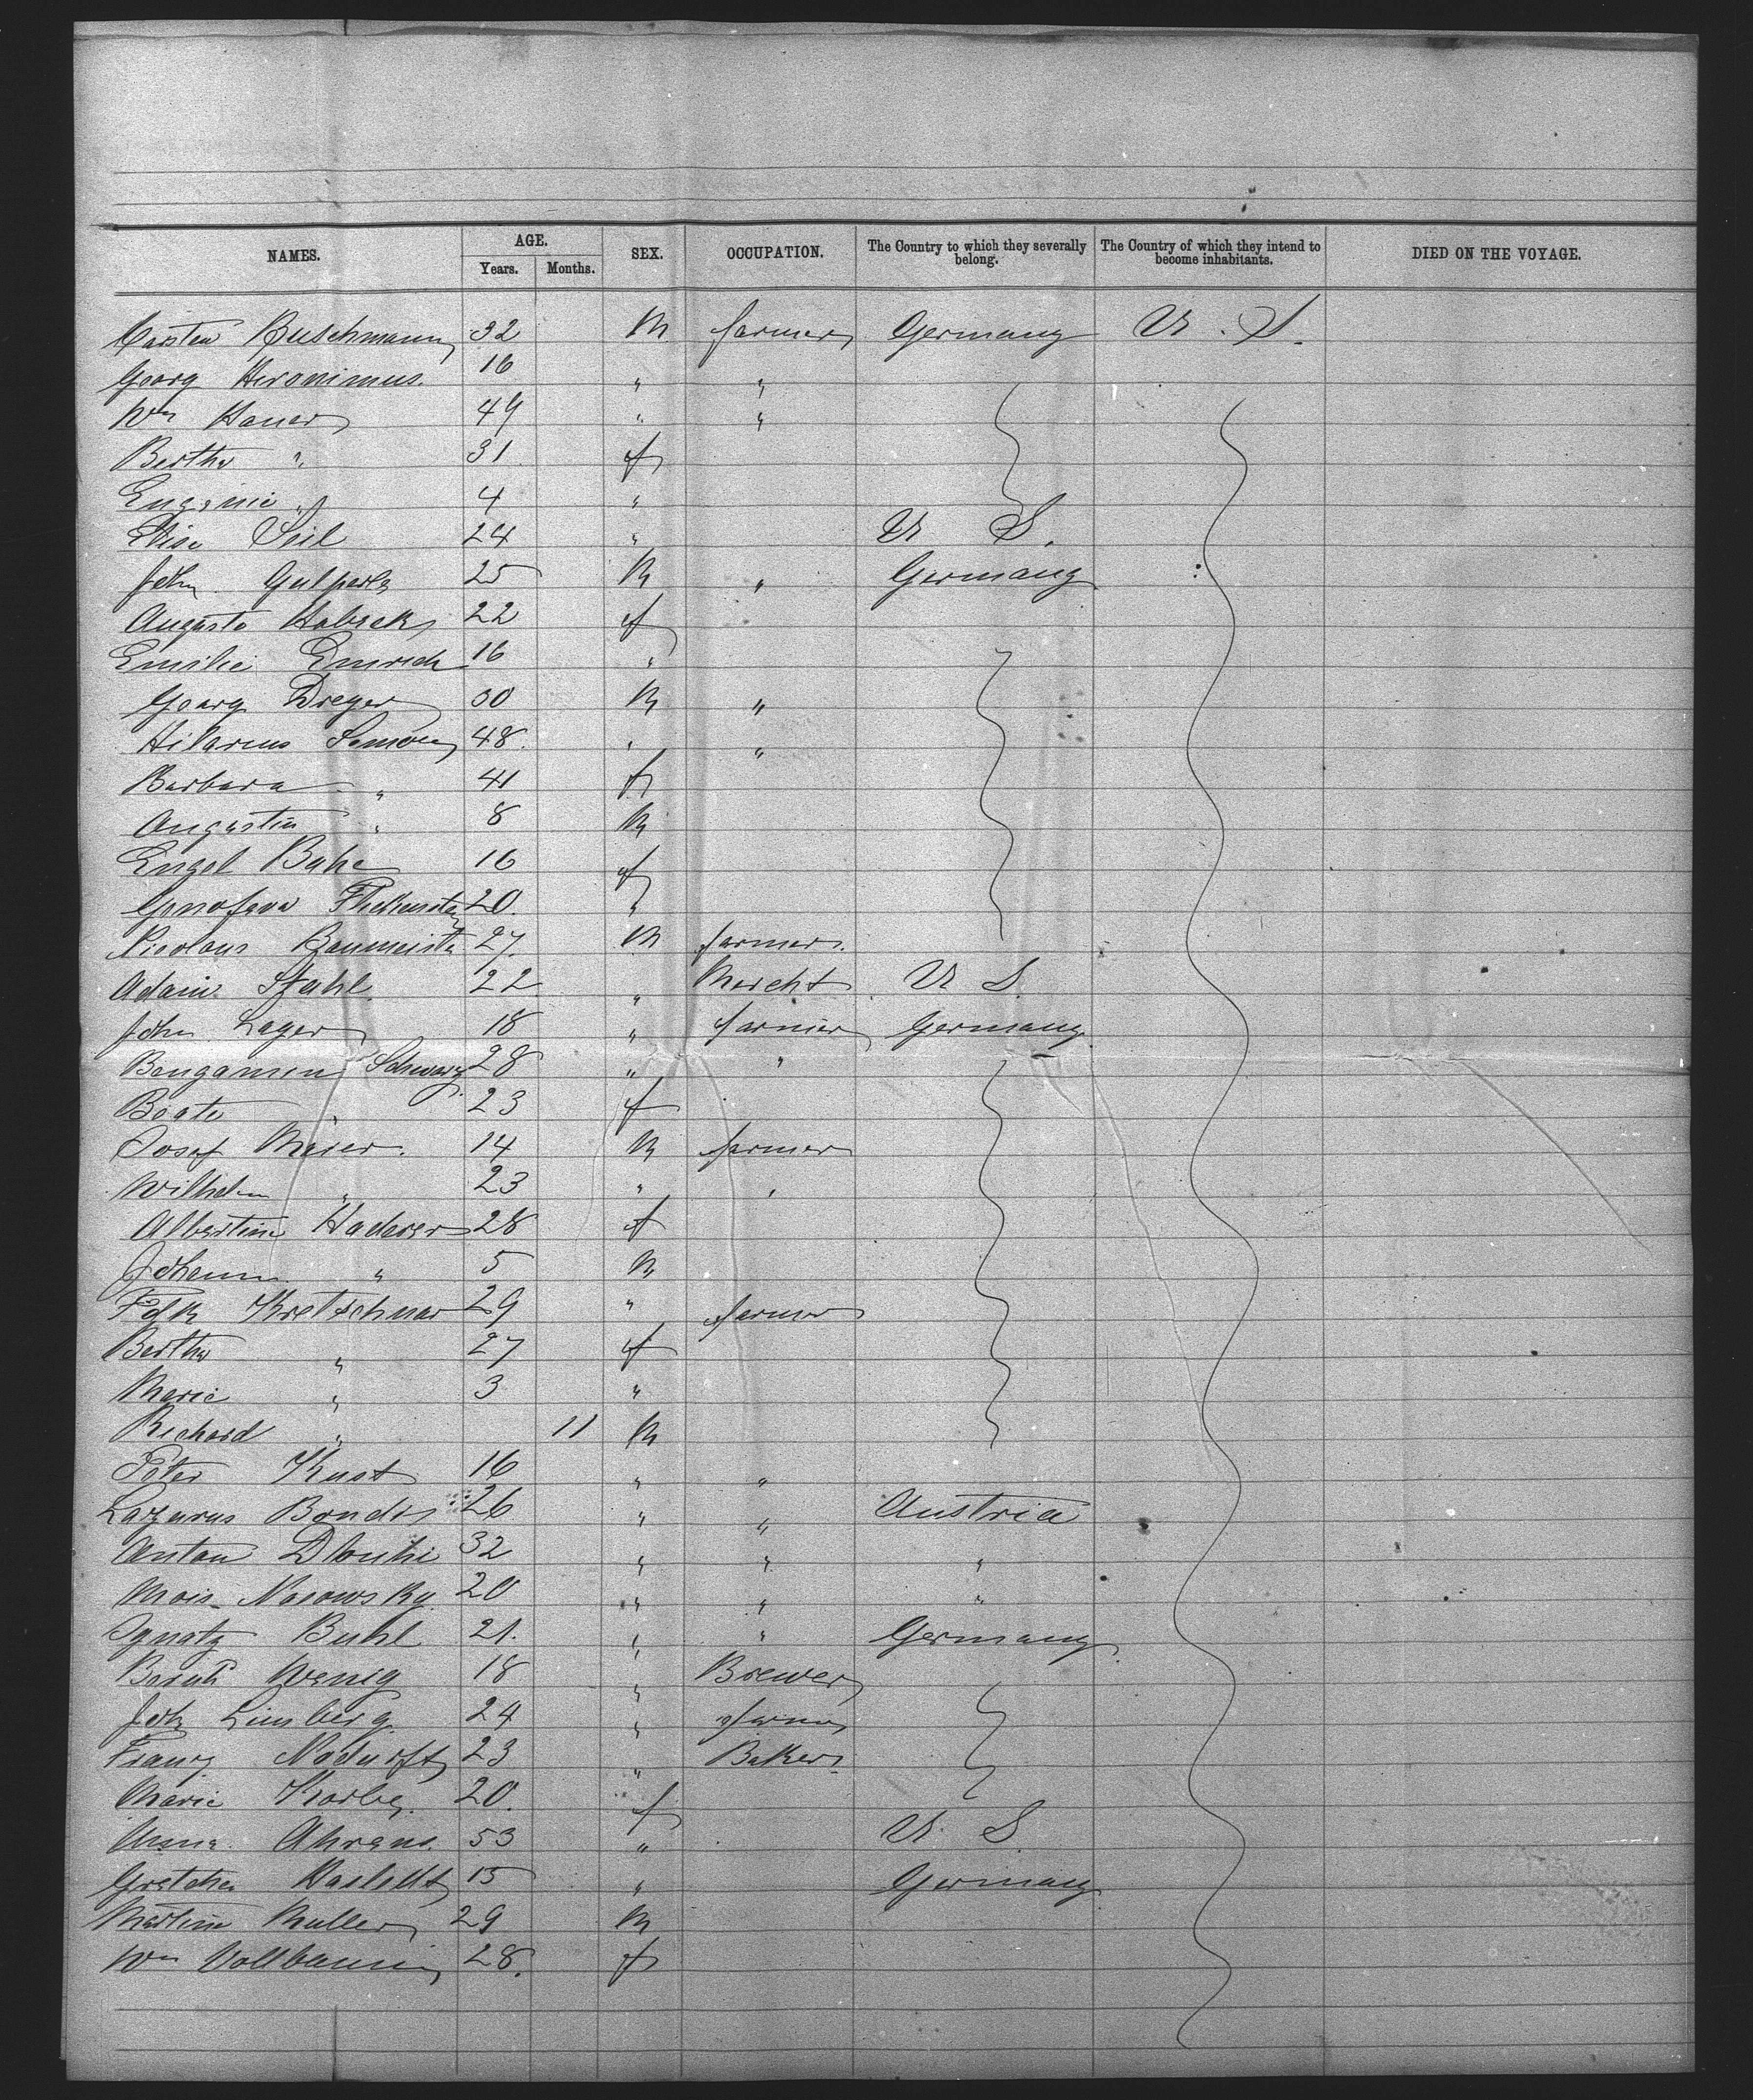 NAMES. AGE. Years. Months. SEX. OCCUPATION. The Country to which they severally belong. The Country of which they intend to become inhabitants. DIED ON THE VOYAGE.
Carsten Buschmann 32 M farmer Germany U. S.
Georg Heronimus. 16 " "
Wm Hauer 49 " "
Bertha " 31 f
Eugenie " 4 "
Elise Seil 24 " U S.
John 25 M " Germany
Augusta 22 f
Emilie Emrich 16 "
Georg Dreyer 30 M "
Hilarius 48. " "
Barbara " 41 f
Augustin " 8 M
Engel Bahe 16 f
Genofava 20. "
Nicolaus Baumeister 27. M farmer.
Adam Stahl. 22 " Mercht U S.
John Lager 18 " farmer Germany
Bengamin Schwarz 28 " "
Beate " 23 f
Josef Meier. 14 M farmer
Wilhelm " 23 " "
Albertine Haderer 28 f
Johann " 5 M
Fdk Kretschmar 29 " farmer
Bertha " 27 f
Marie " 3 "
Richard " 11 M
Peter Kust 16 " "
Lazarus Bondi 26 " " Austria
Anton Dlouhi 32 " " "
Mois Nosowsky. 20 " " "
Ignatz Buhl 21. " " Germany
Wenig 18 " Brewer
Joh Limberg. 24 " farmer
Franz Nodurft 23 " Baker
Marie Korbe. 20. f
Anna Ahrens. 53 " U. S.
Gretchen 15 " Germany
Martin Muller 29 M
Wm Vollbaum 28. f